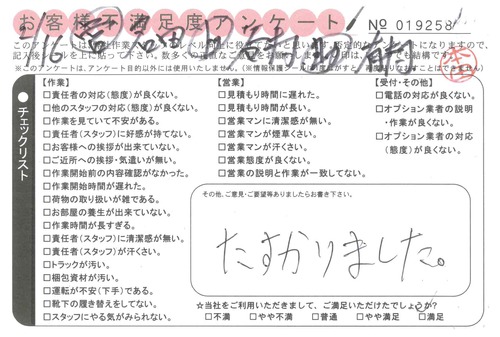 お客様不満足度アンケート
№ 019258
【作業】
□責任者の対応(態度)が良くない。
□他のスタッフの対応(態度)が良くない。
□作業を見ていて不安がある。
□責任者(スタッフ)に好感が持てない。
□お客様への挨拶が出来ていない。
□ご近所への挨拶・気遣いが無い。
□作業開始前の内容確認がなかった。
□作業開始時間が遅れた。
□荷物の取り扱いが雑である。
□お部屋の養生が出来ていない。
□作業時間が長すぎる。
□責任者(スタッフ)に清潔感が無い。
□責任者(スタッフ)が汗くさい。
□トラックが汚い。
□梱包資材が汚い。
□運転が不安(下手)である。
□靴下の履き替えをしてない。
□スタッフにやる気がみられない。
【営業】
□見積もり時間に遅れた。
□見積もり時間が長い。
□営業マンに清潔感が無い。
□営業マンが煙草くさい。
□営業マンが汗くさい。
□営業態度が良くない。
□営業の説明と作業が一致してない。
【受付・その他】
□電話の対応が良くない。
□オプション業者の説明
・作業が良くない。
□オプション業者の対応
(態度)が良くない。
●チェックリスト
その他、ご意見・ご要望等ありましたらお書き下さい。
たすかりました。
☆当社をご利用いただきまして、ご満足いただけたでしょうか?
□不満 □やや不満 □普通 □やや満足 □満足